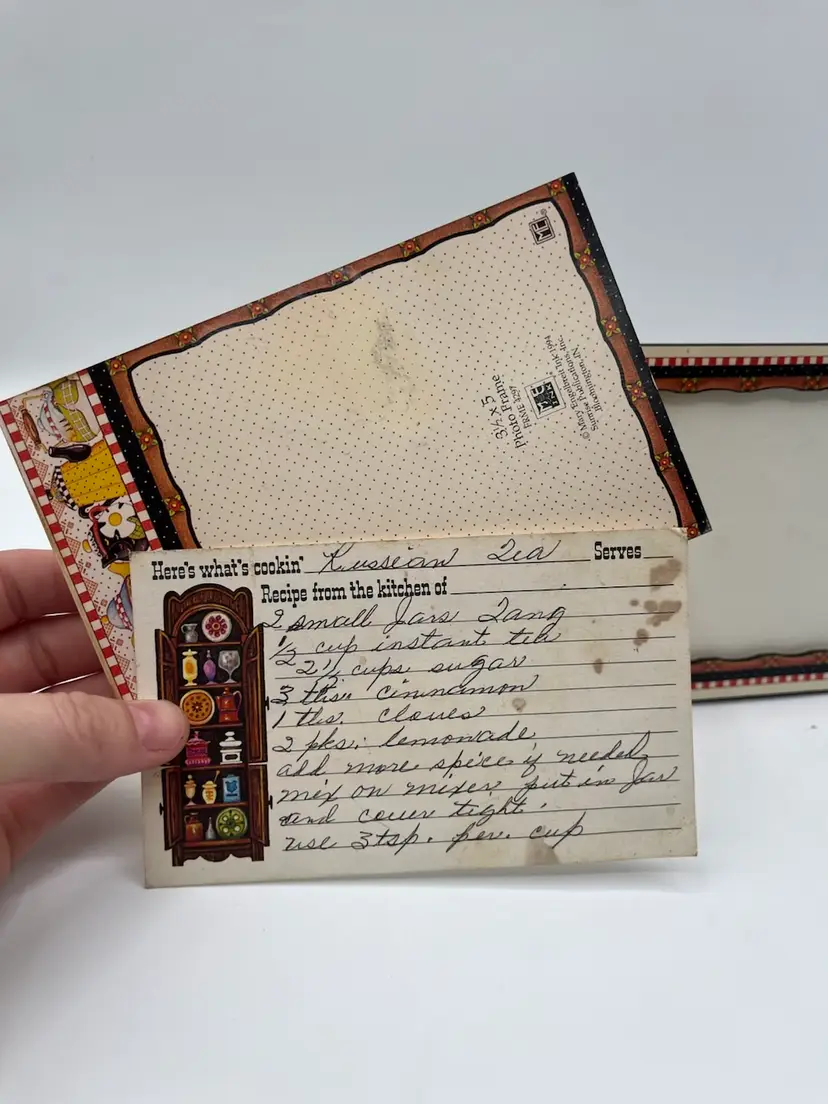 ME
3½ x 5
Photo Frame
FRME 8297
ME
INK
© Mary Engelbreit Ink 1994
Sunrise Publications, Inc.
Bloomington, IN
Here's what's cookin' Russian Tea Serves
Recipe from the kitchen of
2 small Jars Tang
½ cup instant tea
2½ cups sugar
3 tbs. cinnamon
1 tbs. cloves
2 pks. lemonade
add more spice if needed
mix on mixer put in Jar
and cover tight.
use 3 tsp. per. cup